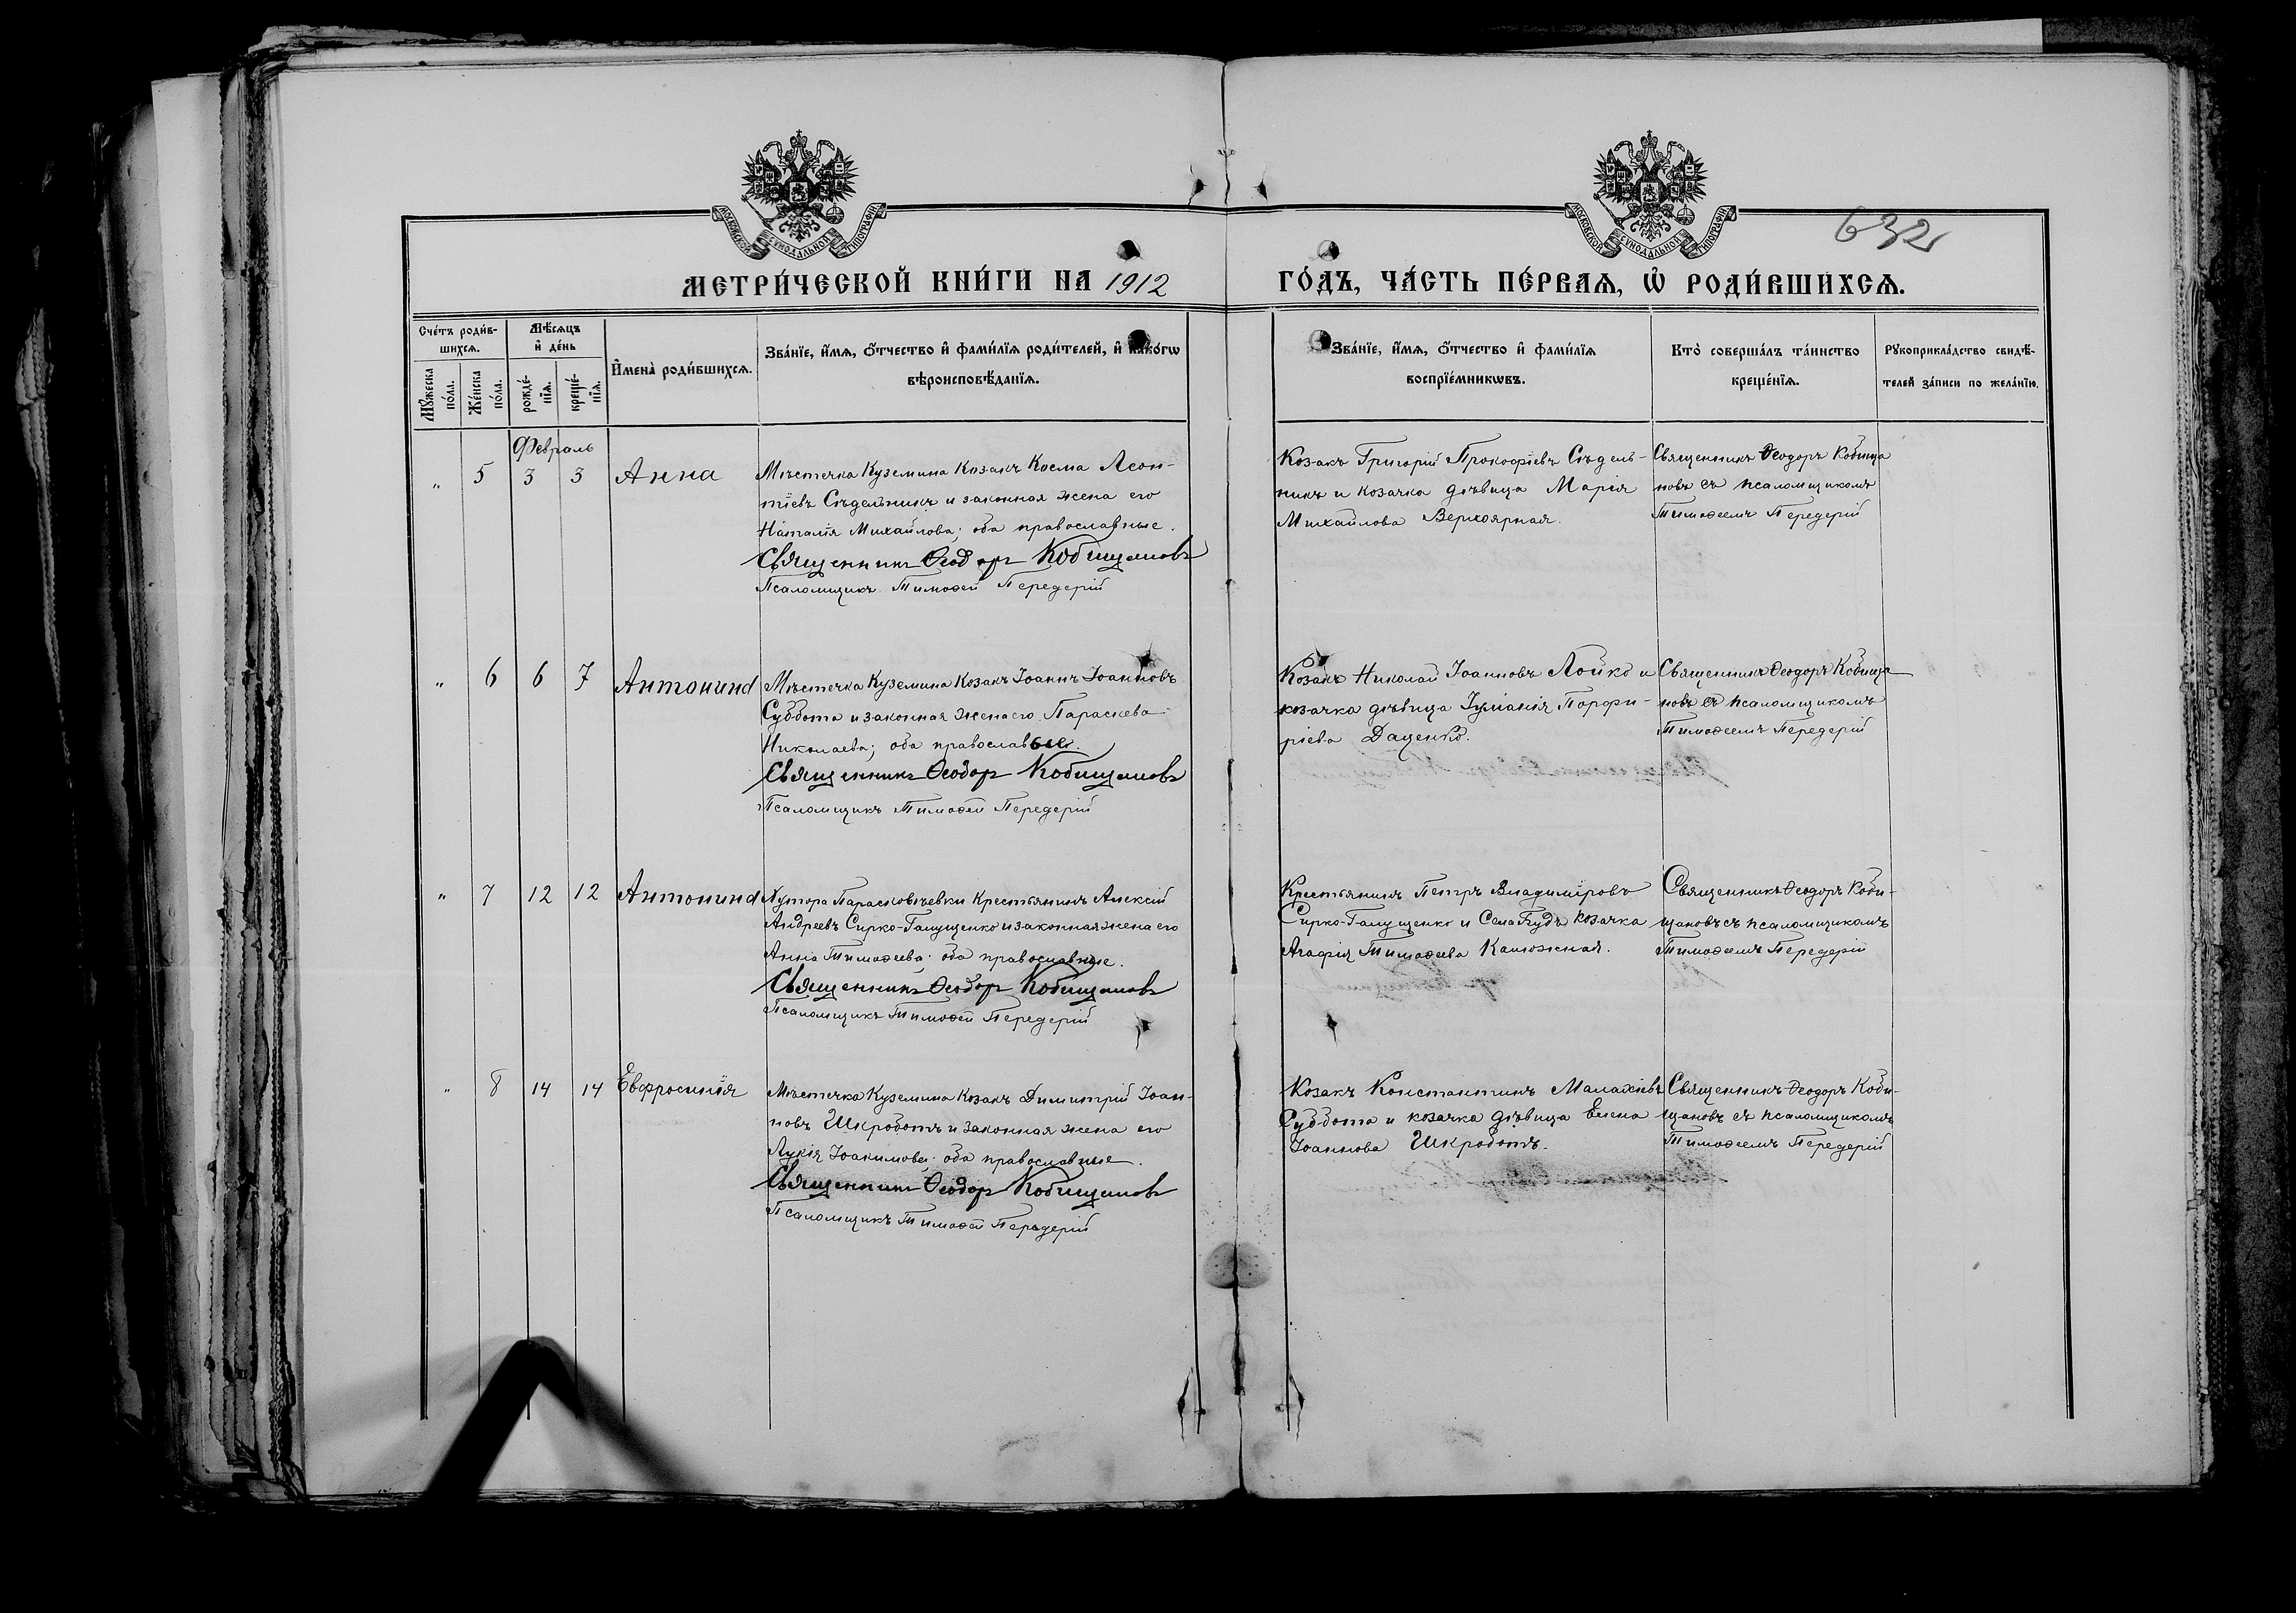 МОСКОВСКОЙ СУНОДАЛЬНОЙ ТИПОГРАФІИ
МОСКОВСКОЙ СУНОДАЛЬНОЙ ТИПОГРАФІИ
632
МЕТРИ́ЧЕСКОЙ КНИ́ГИ НА 1912
ГО́ДЪ, ЧА́СТЬ ПЕ́РВАѦ, Ѡ҆ РОДИ́ВШИХСѦ.
Сче́тъ роди́в-
шихсѧ.
Мѣ́сѧцъ
и҆ де́нь
Мꙋ́жеска по́ла.
Же́нска по́ла.
рожде́-
нїѧ.
креще́-
нїѧ.
И҆мена̀ роди́вшихсѧ.
Зва́нїе, и҆́мѧ, ѻ҆́тчество и҆ фами́лїѧ роди́телей, и҆ како́гѡ
вѣроисповѣ́данїѧ.
Зва́нїе, и҆́мѧ, ѻ҆́тчество и҆ фами́лїѧ
воспрїе́мникѡвъ.
Кто̀ соверша́лъ та́инство
креще́нїѧ.
Рꙋкоприкла́дство свидѣ́-
телей за́писи по жела́нїю.
Февраль
" 5 3 3 Анна
Мѣстечка Куземина Козакъ Косма Леон-
тіевъ Сѣдельникъ и законная жена его
Наталія Михайлова; оба православные.
Священникъ Ѳеодоръ Кобищановъ
Псаломщикъ Тимоѳей Передерій
Козакъ Григорій Прокофіевъ Сѣдель-
никъ и козачка дѣвица Марія
Михайлова Верхоярная.
Священникъ Ѳеодоръ Кобища
новъ съ псаломщикомъ
Тимоѳеемъ Передерій
" 6 6 7 Антонина
Мѣстечка Куземина Козакъ Іоаннъ Іоанновъ
Суббота и законная жена его Параскева
Николаева; оба православные.
Священникъ Ѳеодоръ Кобищановъ
Псаломщикъ Тимоѳей Передерій
Козакъ Николай Іоанновъ Лойко и
козачка дѣвица Іуліанія Порфи-
ріева Даценко.
Священникъ Ѳеодоръ Кобища
новъ съ псаломщикомъ
Тимоѳеемъ Передерій
" 7 12 12 Антонина
Хутора Парасковіевки Крестьянинъ Алексій
Андреевъ Сирко-Галущенко и законная жена его
Анна Тимоѳеева; оба православные.
Священникъ Ѳеодоръ Кобищановъ
Псаломщикъ Тимоѳей Передерій
Крестьянинъ Петръ Владиміровъ
Сирко-Галущенко и Села Будъ козачка
Агафія Тимоѳеева Калюжная.
Священникъ Ѳеодоръ Коби-
щановъ съ псаломщикомъ
Тимоѳеемъ Передерій
" 8 14 14 Евфросинія
Мѣстечка Куземина Козакъ Димитрій Іоан-
новъ Шкроботъ и законная жена его
Лукія Іоакимова; оба православные.
Священникъ Ѳеодоръ Кобищановъ
Псаломщикъ Тимоѳей Передерій
Козакъ Константинъ Малахіевъ
Суббота и козачка дѣвица Елена
Іоаннова Шкроботъ.
Священникъ Ѳеодоръ Коби-
щановъ съ псаломщикомъ
Тимоѳеемъ Передерій